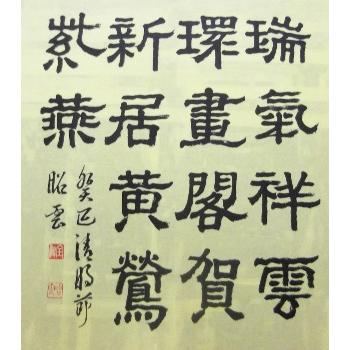 瑞氣祥雲
環畫閣賀
新居黃鶯
紫燕
癸巳清明節
昭雲